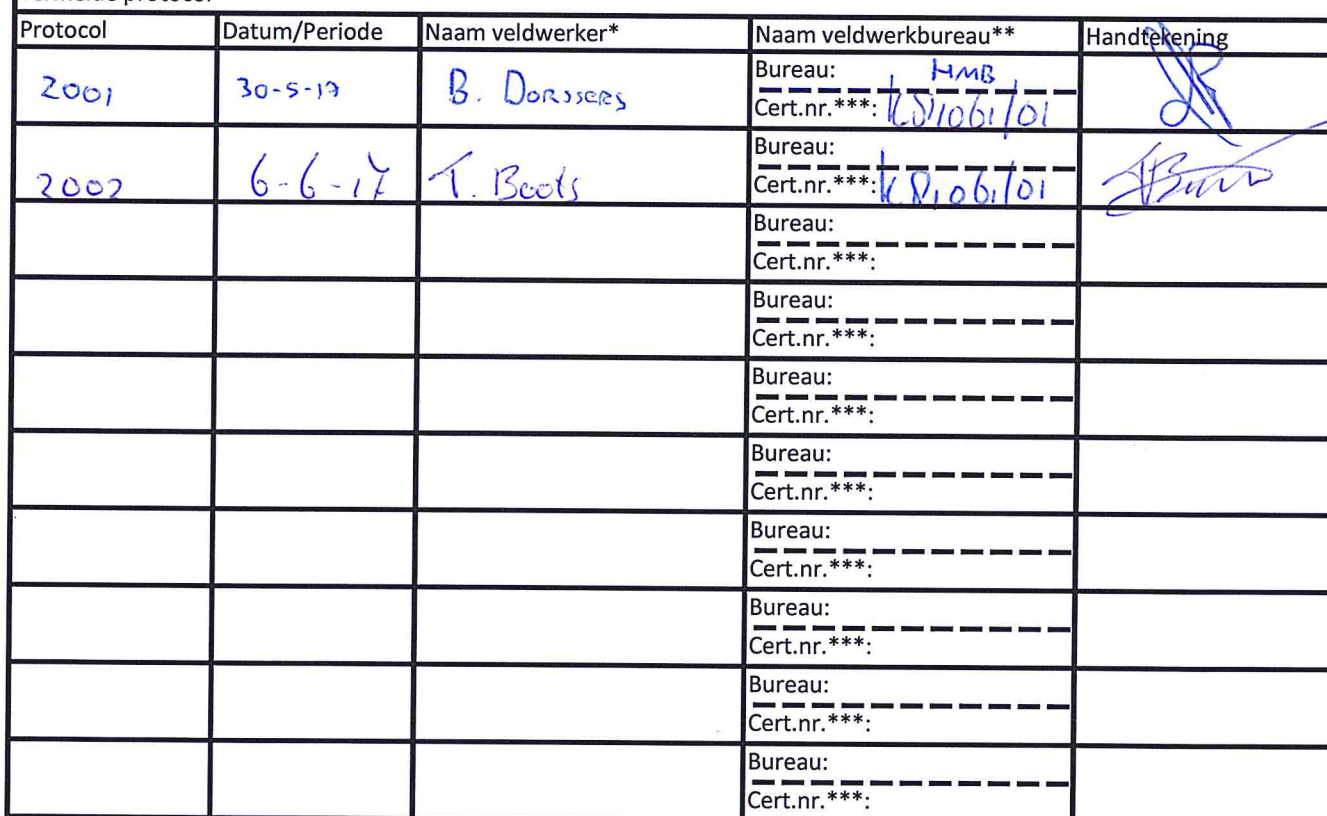 Protocol Datum/Periode Naam veldwerker* Naam veldwerkbureau** Handtekening
Bureau: HMB
2001 30-5-17 B. Dorssers
Cert.nr.***:
Bureau:
2002 6-6-17 T. Boots
Cert.nr.***:
Bureau:
Cert.nr.***:
Bureau:
Cert.nr.***:
Bureau:
Cert.nr.***:
Bureau:
Cert.nr.***:
Bureau:
Cert.nr.***:
Bureau:
Cert.nr.***:
Bureau:
Cert.nr.***:
Bureau:
Cert.nr.***: